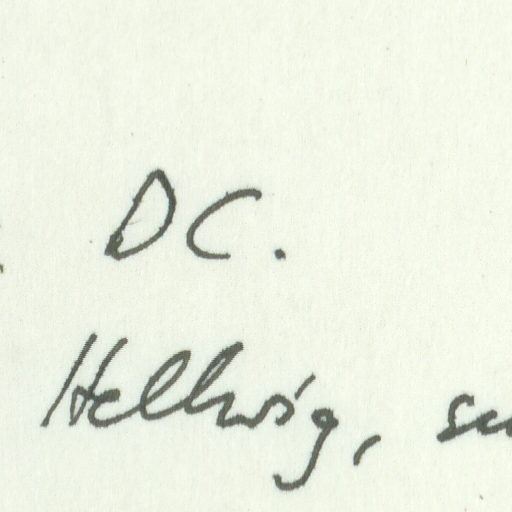 DC.
Hellwig,